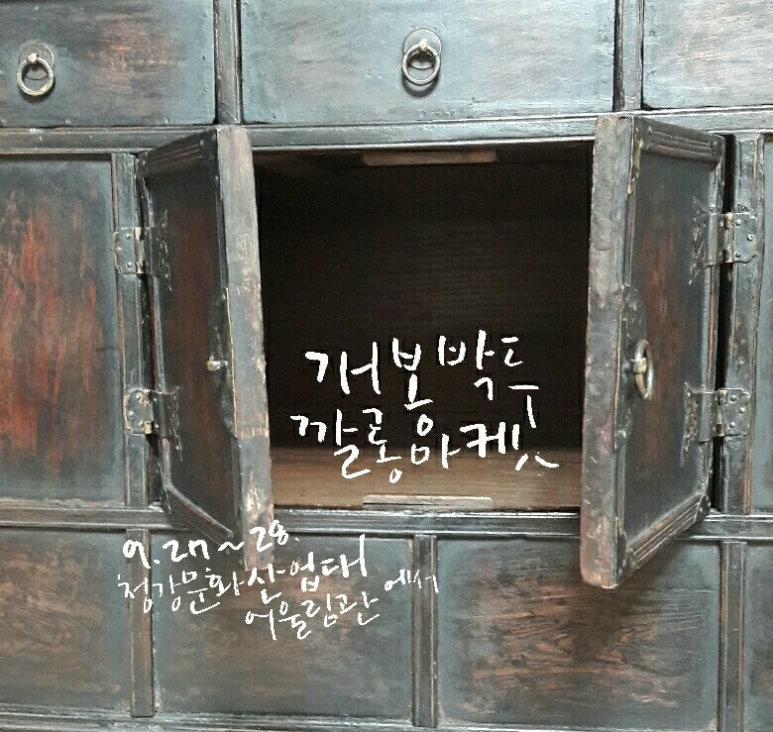 개봉박두
깔롱마켓
9.27~28.
청강문화산업대
어울림관에서